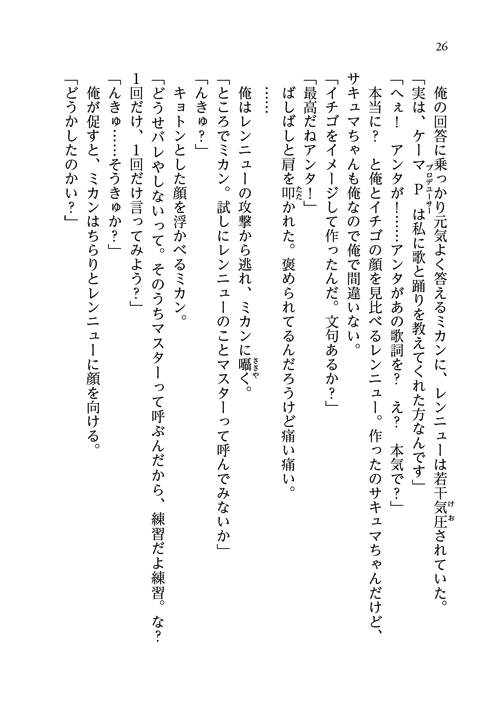 26
俺の回答に乗っかり元気よく答えるミカンに、レンニューは若干気圧されていた。
「実は、ケーマPは私に歌と踊りを教えてくれた方なんです」
「へぇ！　アンタが！……アンタがあの歌詞を？　え？　本気で？」
本当に？　と俺とイチゴの顔を見比べるレンニュー。作ったのサキュマちゃんだけど、
サキュマちゃんも俺なので俺で間違いない。
「イチゴをイメージして作ったんだ。文句あるか？」
「最高だねアンタ！」
ばしばしと肩を叩かれた。褒められてるんだろうけど痛い痛い。
……
俺はレンニューの攻撃から逃れ、ミカンに囁く。
「ところでミカン。試しにレンニューのことマスターって呼んでみないか」
「んきゅ？」
キョトンとした顔を浮かべるミカン。
「どうせバレやしないって。そのうちマスターって呼ぶんだから、練習だよ練習。な？
1回だけ、1回だけ言ってみよう？」
「んきゅ……そうきゅか？」
俺が促すと、ミカンはちらりとレンニューに顔を向ける。
「どうかしたのかい？」